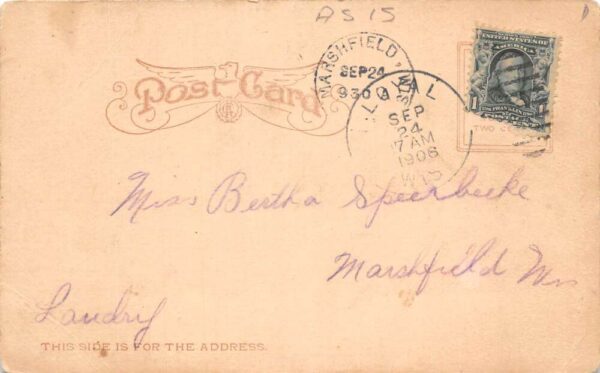 AS 15
MARSHFIELD, WIS.
SEP 24
930 A
LOYAL
SEP
24
7 AM
1906
WIS
UNITED STATES OF
AMERICA
1 1
FRANKLIN
Post Card
TWO CE
Miss Bertha Speerbecke
Marshfield Wis
Landry
THIS SIDE IS FOR THE ADDRESS.